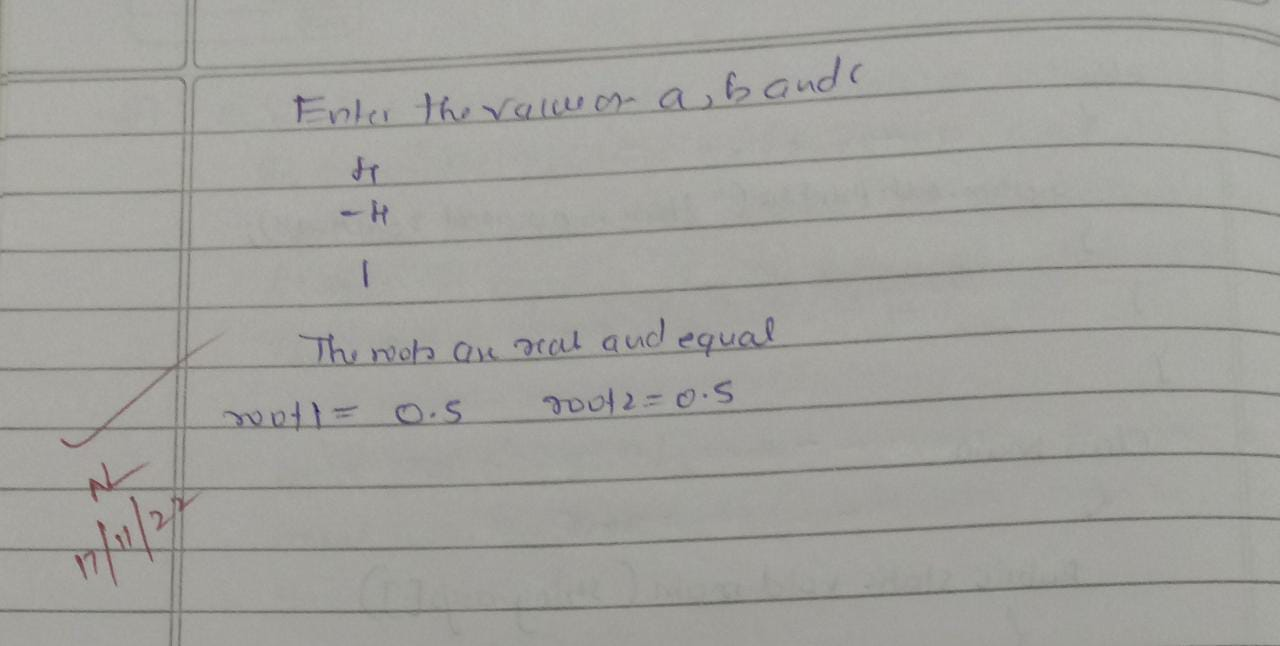 Enter the value of a, b and c
4
-4
1
The roots are real and equal
root1 = 0.5 root2 = 0.5
17/11/22